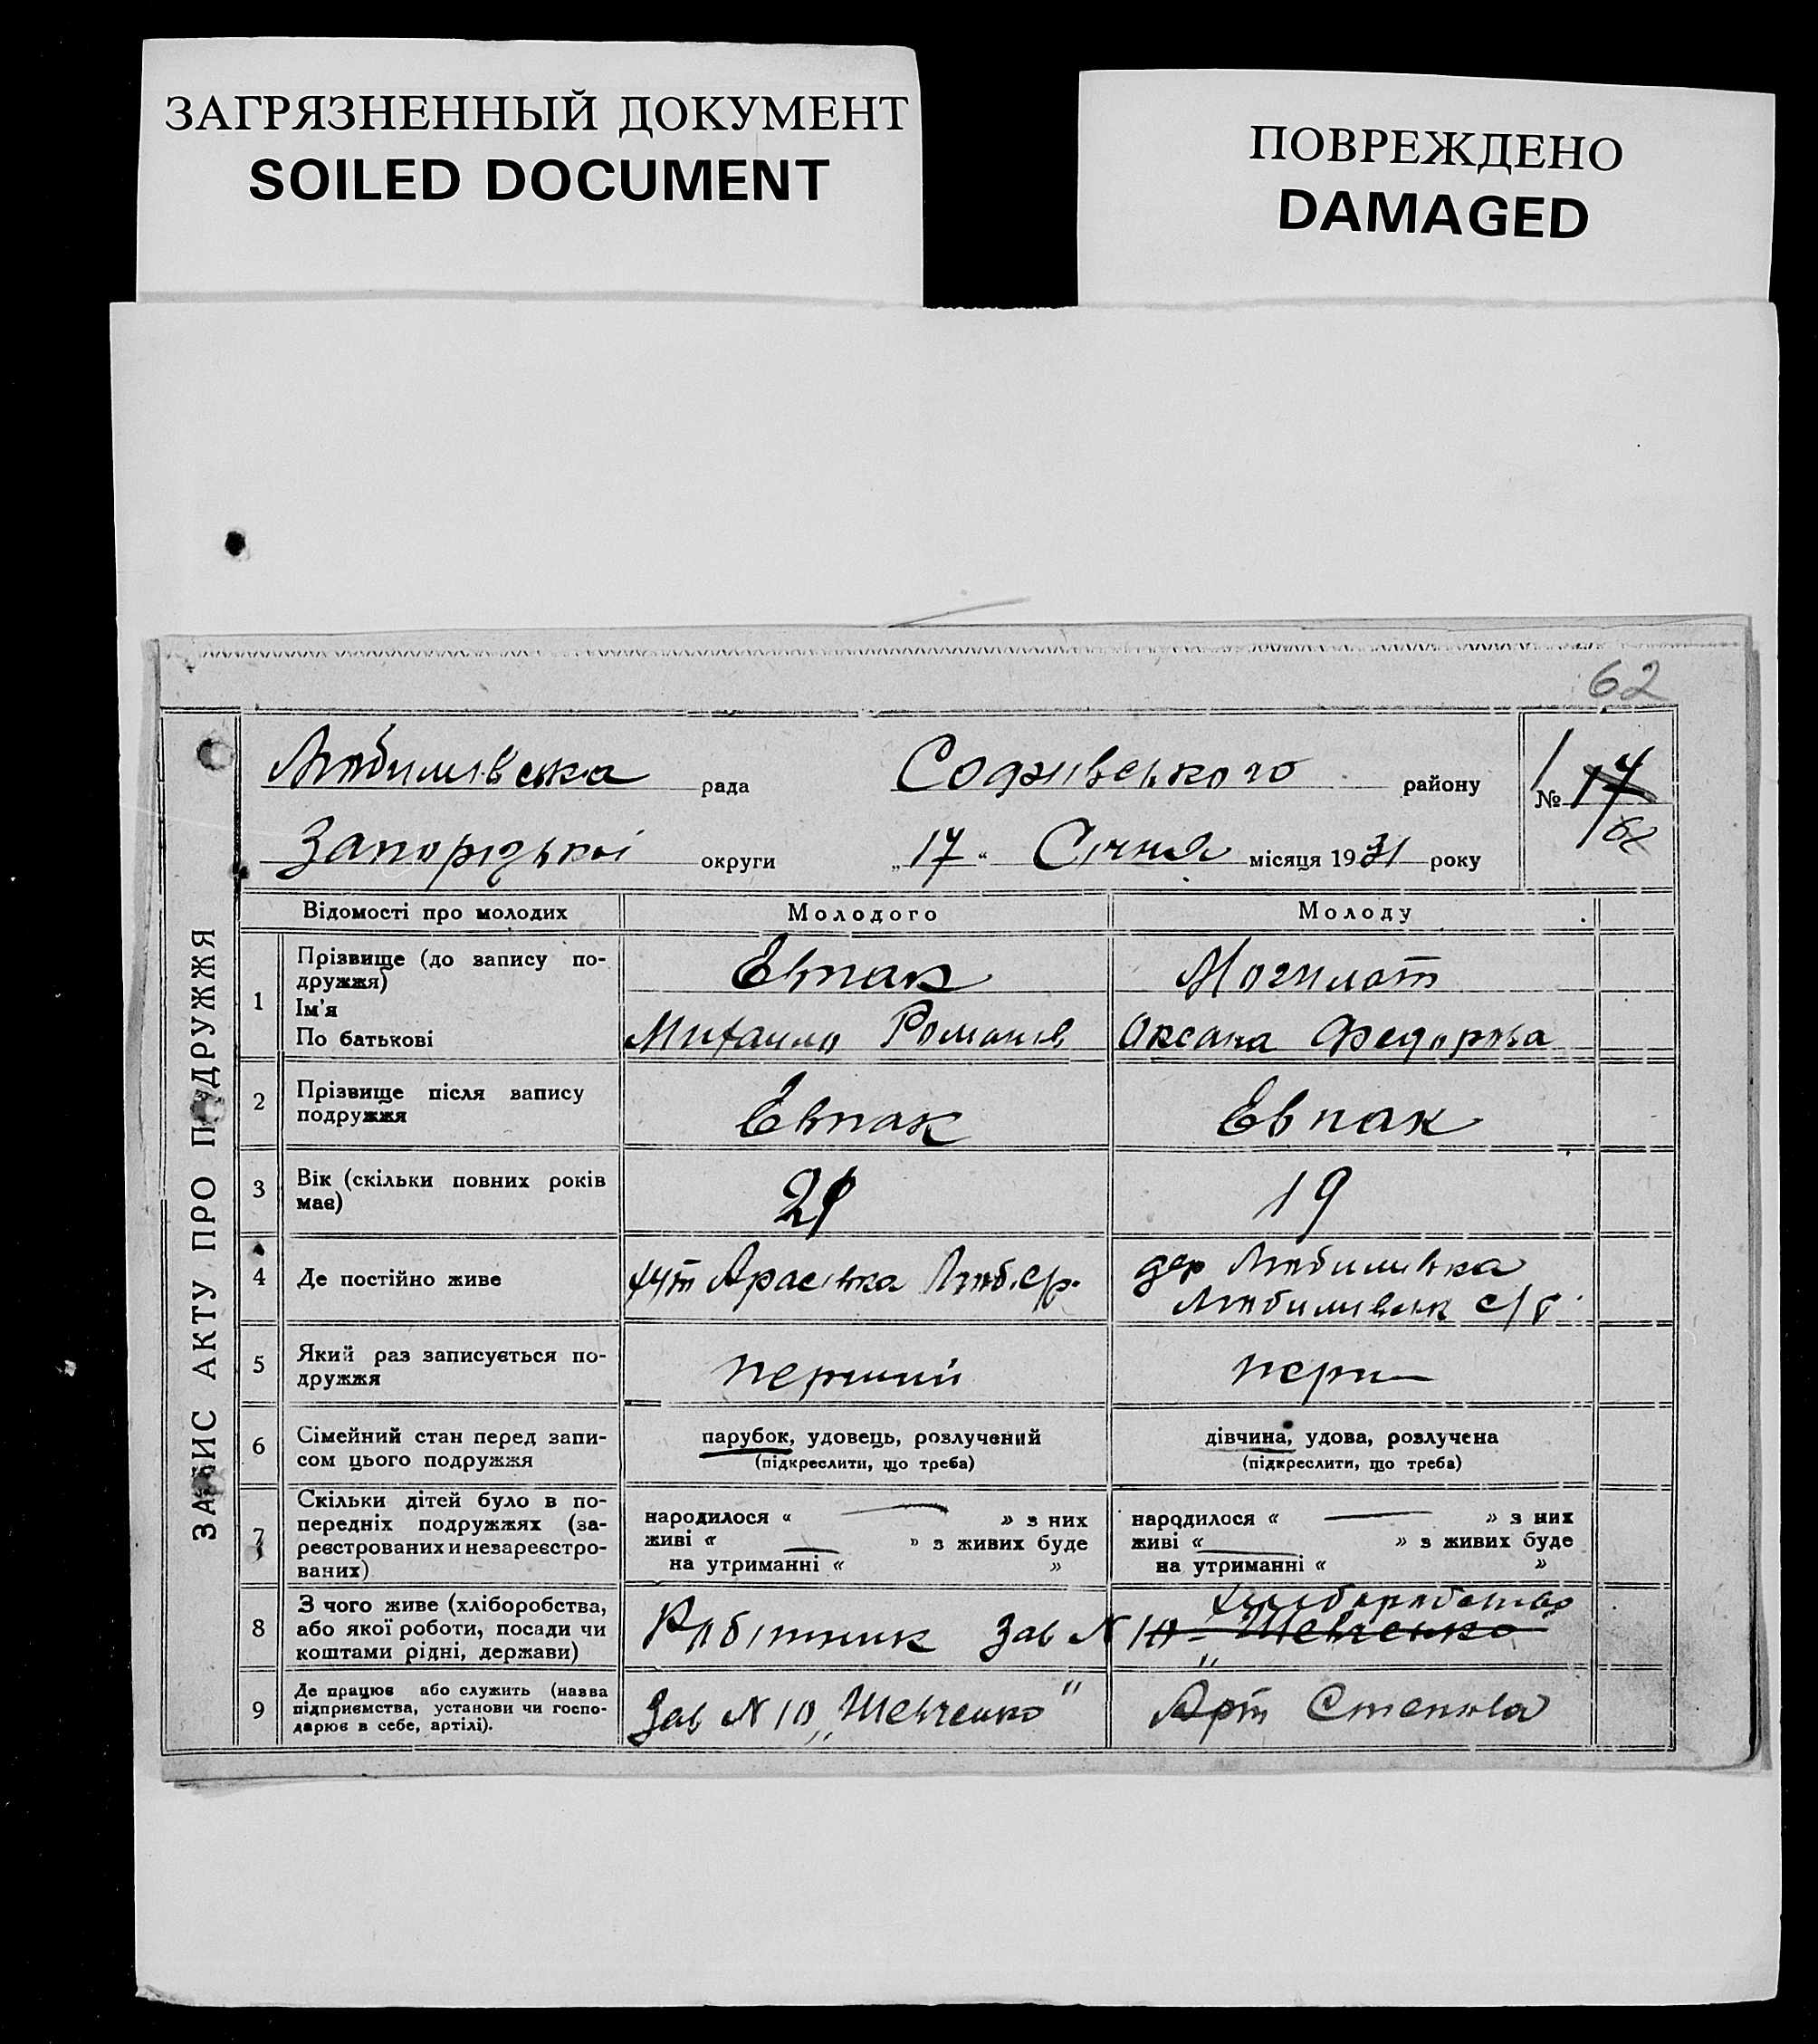 ЗАГРЯЗНЕННЫЙ ДОКУМЕНТ
SOILED DOCUMENT
ПОВРЕЖДЕНО
DAMAGED
62
ЗАПИС АКТУ ПРО ПОДРУЖЖЯ
Любимівська рада Софіївського району
№ 17
62
Запорізької округи „17" Січня місяця 1931 року
Відомості про молодих Молодого Молоду
1 Прізвище (до запису по-
дружжя) Евпак
Ім'я
По батькові Михайло Романів Оксана Федорова
2 Прізвище після запису
подружжя Евпак Евпак
3 Вік (скільки повних років
має) 19
4 Де постійно живе хут Люб. с/р. дер Любимівка
Любимивськ с/р
5 Який раз записується по-
дружжя перший перш
6 Сімейний стан перед запи-
сом цього подружжя
парубок, удовець, розлучений
(підкреслити, що треба)
дівчина, удова, розлучена
(підкреслити, що треба)
7 Скільки дітей було в по-
передніх подружжях (за-
реєстрованих и незареєстро-
ваних)
народилося « — » з них
живі « — » з живих буде
на утриманні « »
народилося « — » з них
живі « — » з живих буде
на утриманні « »
8 З чого живе (хліборобства,
або якої роботи, посади чи
коштами рідні, держави)
хлиборобство
Робітник Зав N 10 „Шевченко"
9 Де працює або служить (назва
підприємства, установи чи госпо-
дарює в себе, артілі).
Зав N 10 „Шевченко" Арт Степова